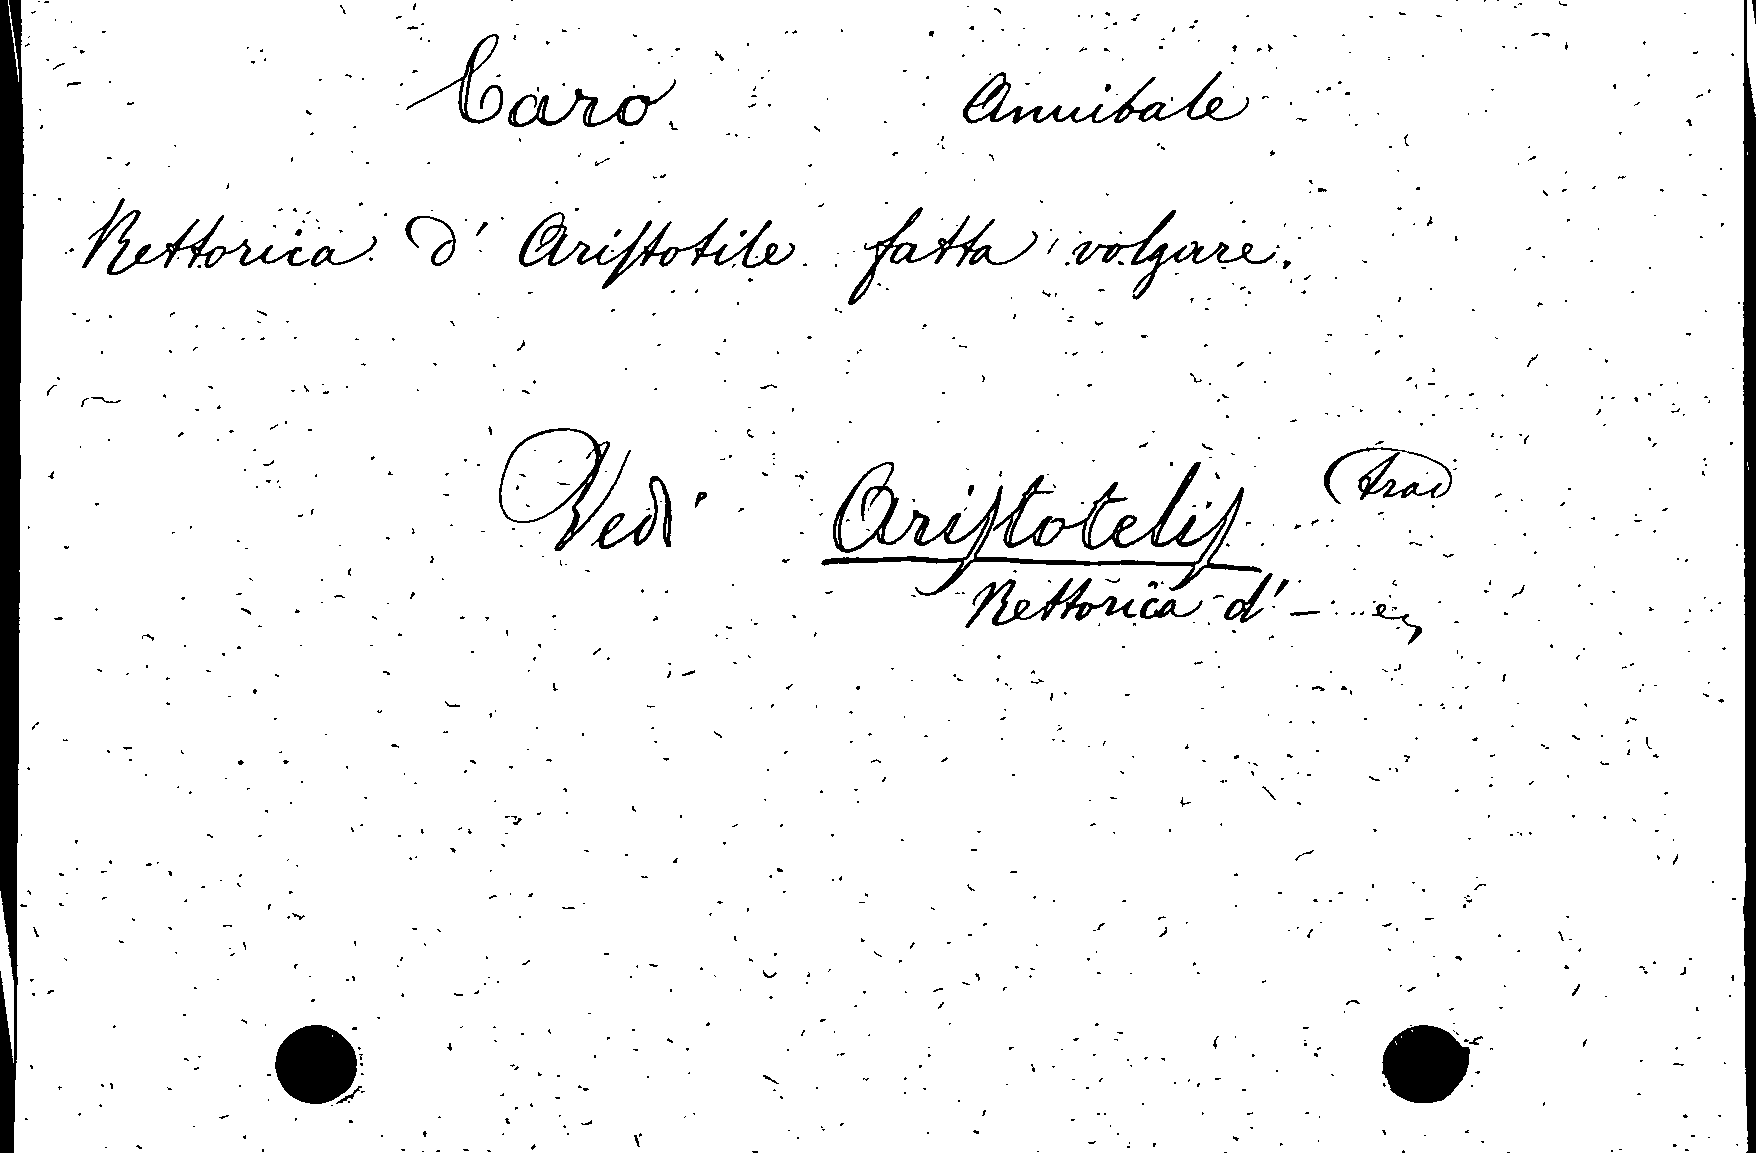 Caro Annibale
Rettorica d' Ariſtotile fatta volgare.
Vedi Ariſtoteliſ Trad
Rettorica d' –